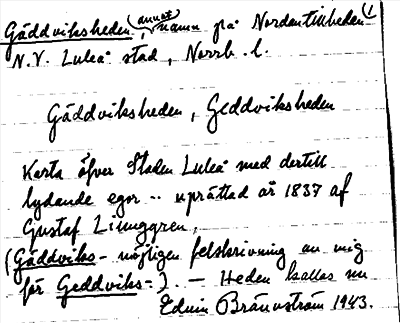 Gäddviksheden (annat namn på Nordantillheden)
N.V. Luleå stad, Norrb. l.
Gäddviksheden, Geddviksheden
Karta öfver Staden Luleå med dertill
lydande egor -- upprättad år 1837 af
Gustaf Ljunggren,
(Gäddviks- möjligen felskrivning av mig
för Geddviks-). — Heden kallas nu
Edvin Brännström 1943.